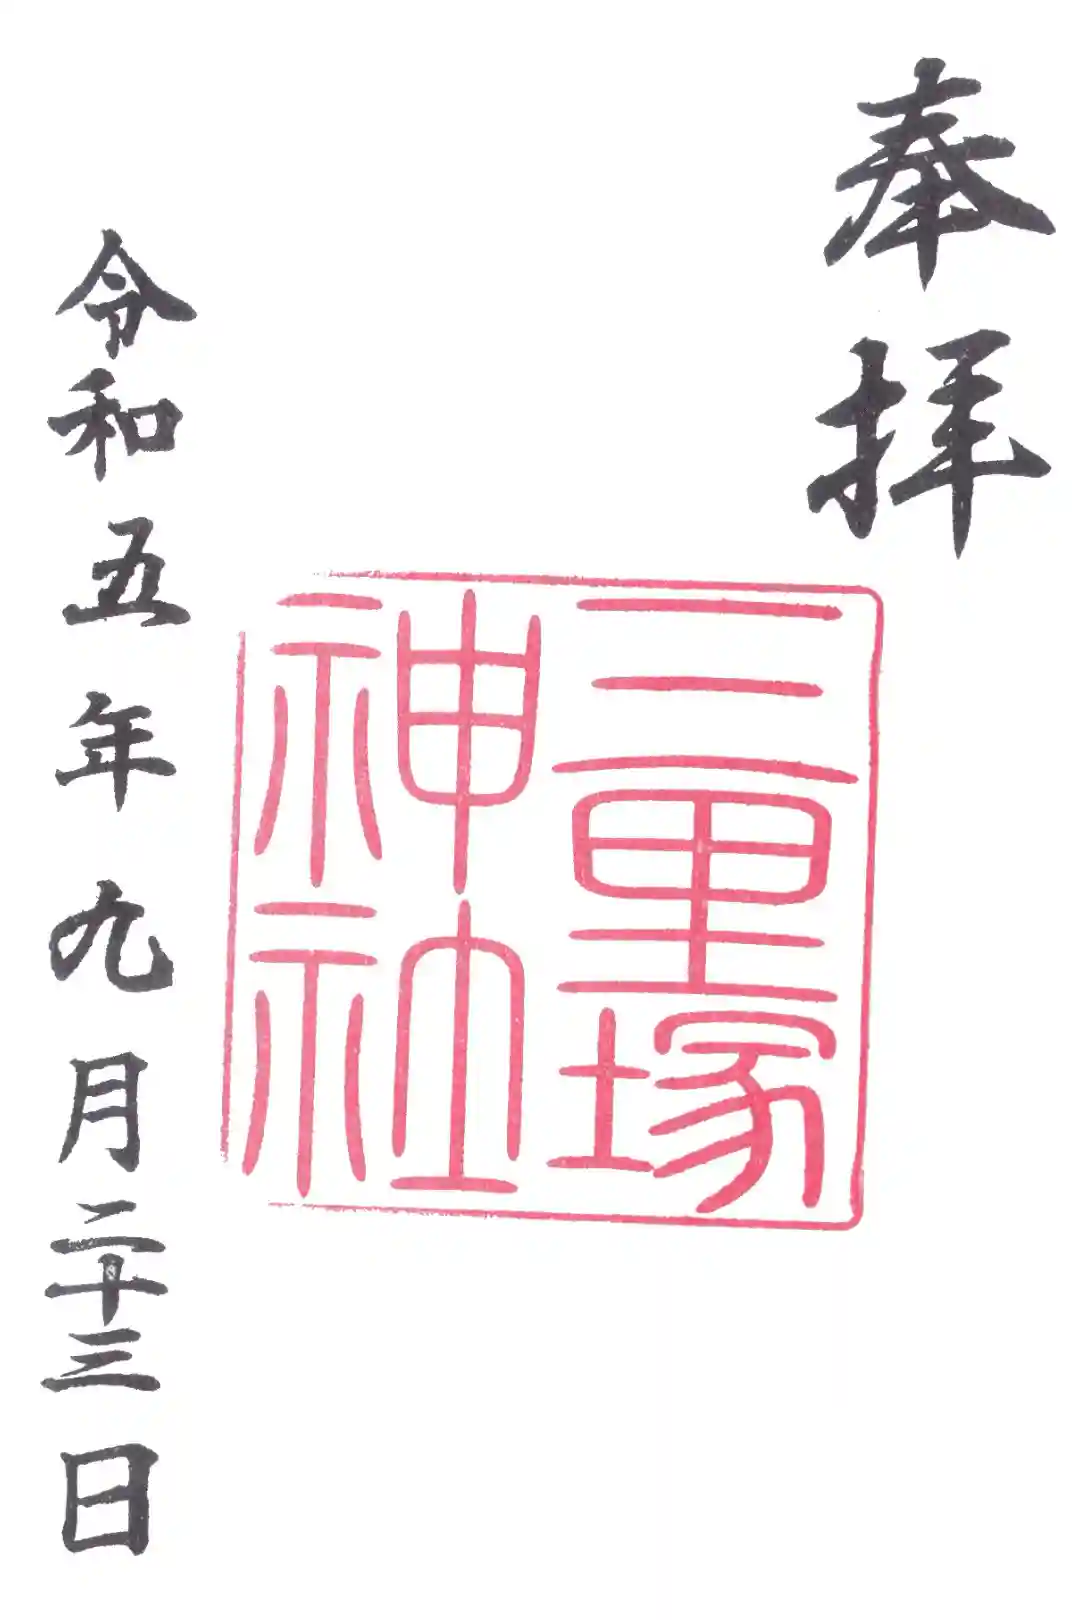 奉拝
三里塚
神社
令和五年九月二十三日